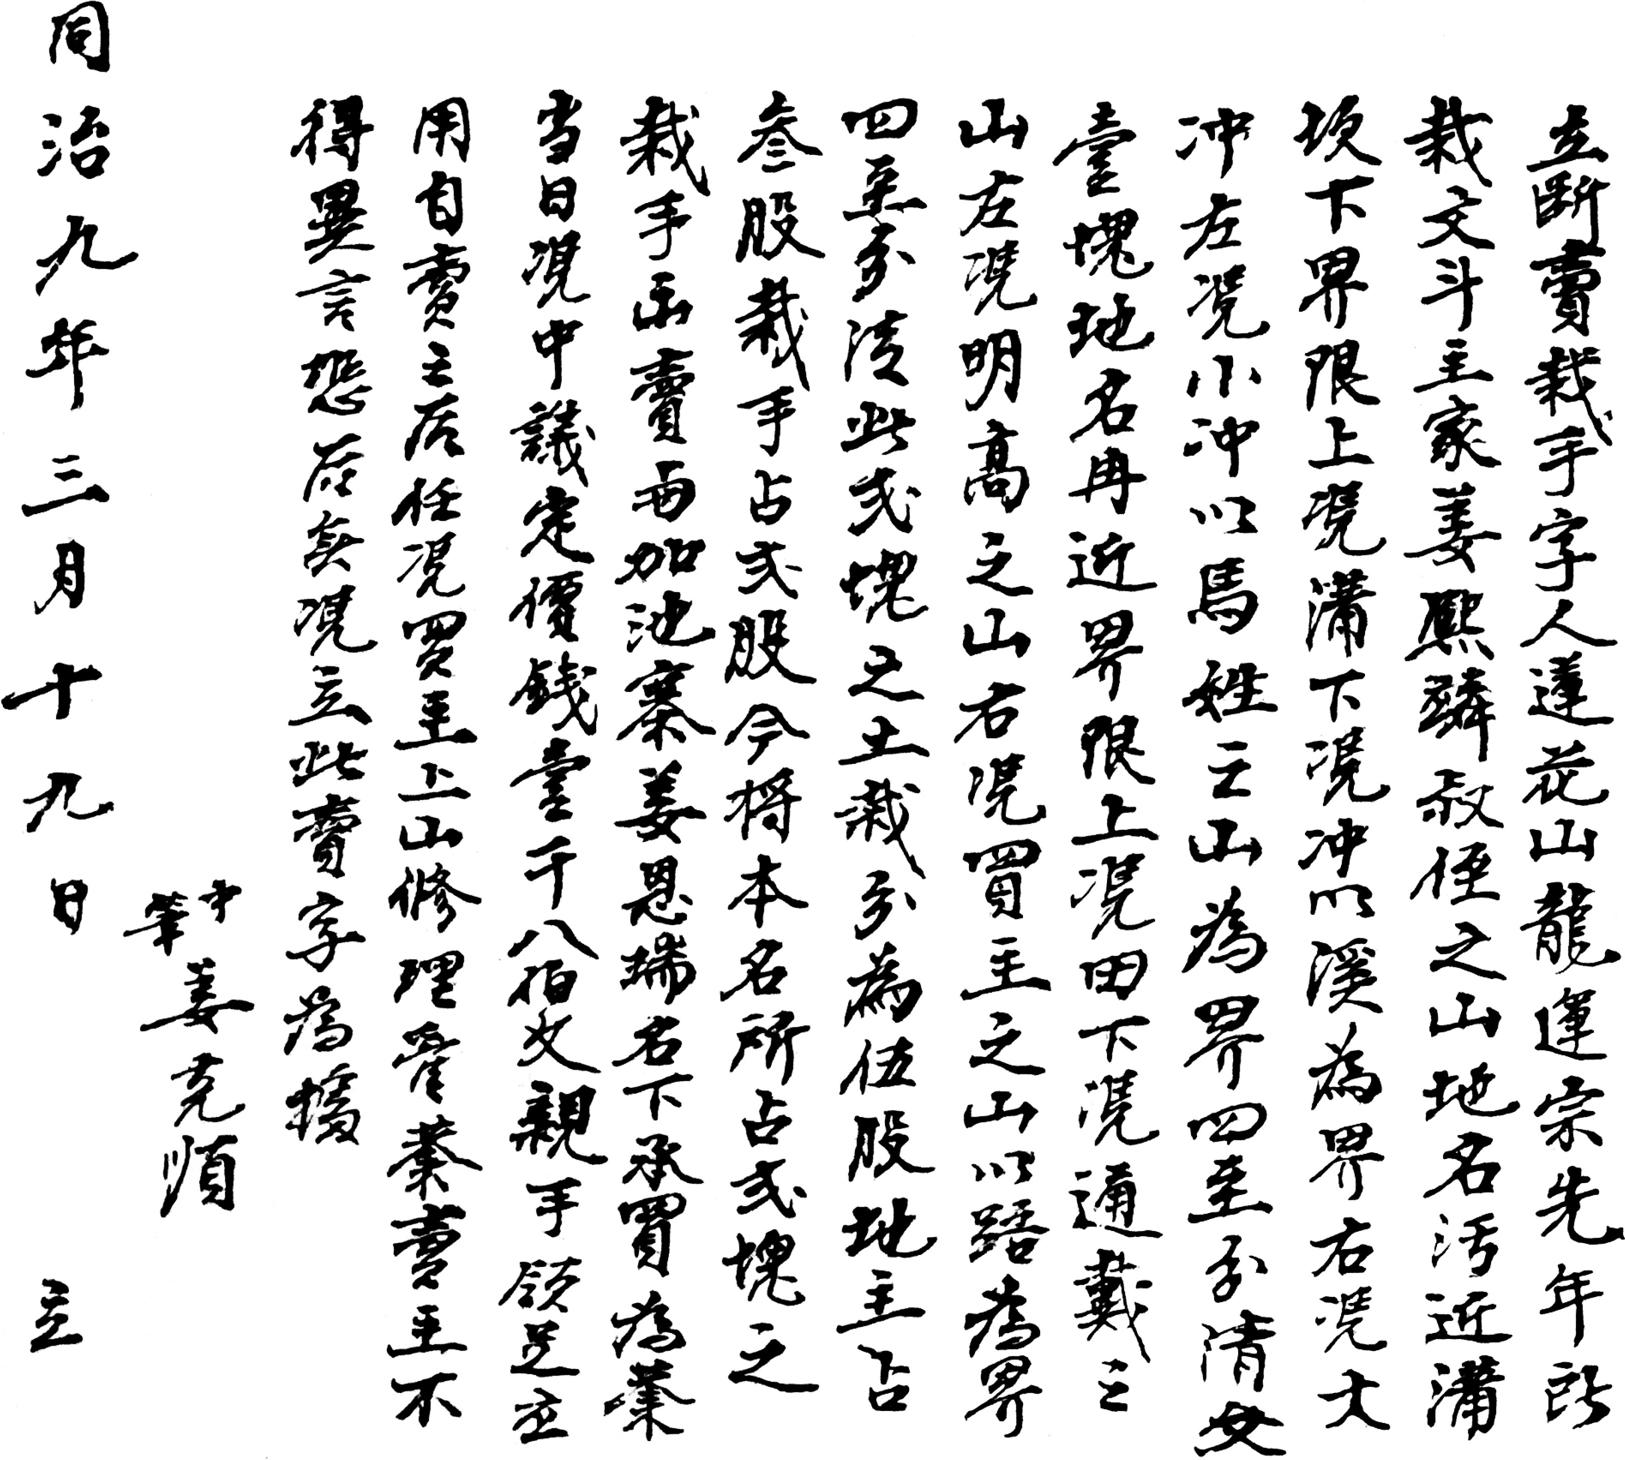 立斷賣栽手字人蓮花山龍運宗先年所
栽文斗主家姜熙麟叔侄之山地名汚近溝
坎下界限上凴溝下凴冲以溪為界右凴大
冲左凴小冲以馬姓之山為界四至分清又
壹塊地名冉近界限上凴田下凴通戴之
山左凴明高之山右凴買主之山以路為界
四至分清此弍塊之土栽分為伍股地主占
叁股栽手占弍股今将本名所占弍塊之
栽手出賣與加池寨姜恩瑞名下承買為業
当日凴中議定價錢壹千八伯文親手領足应
用自賣之后任凴買主上山修理管業賣主不
得異言恐后無凴立此賣字為據
中
筆
姜克順
同治九年三月十九日 立